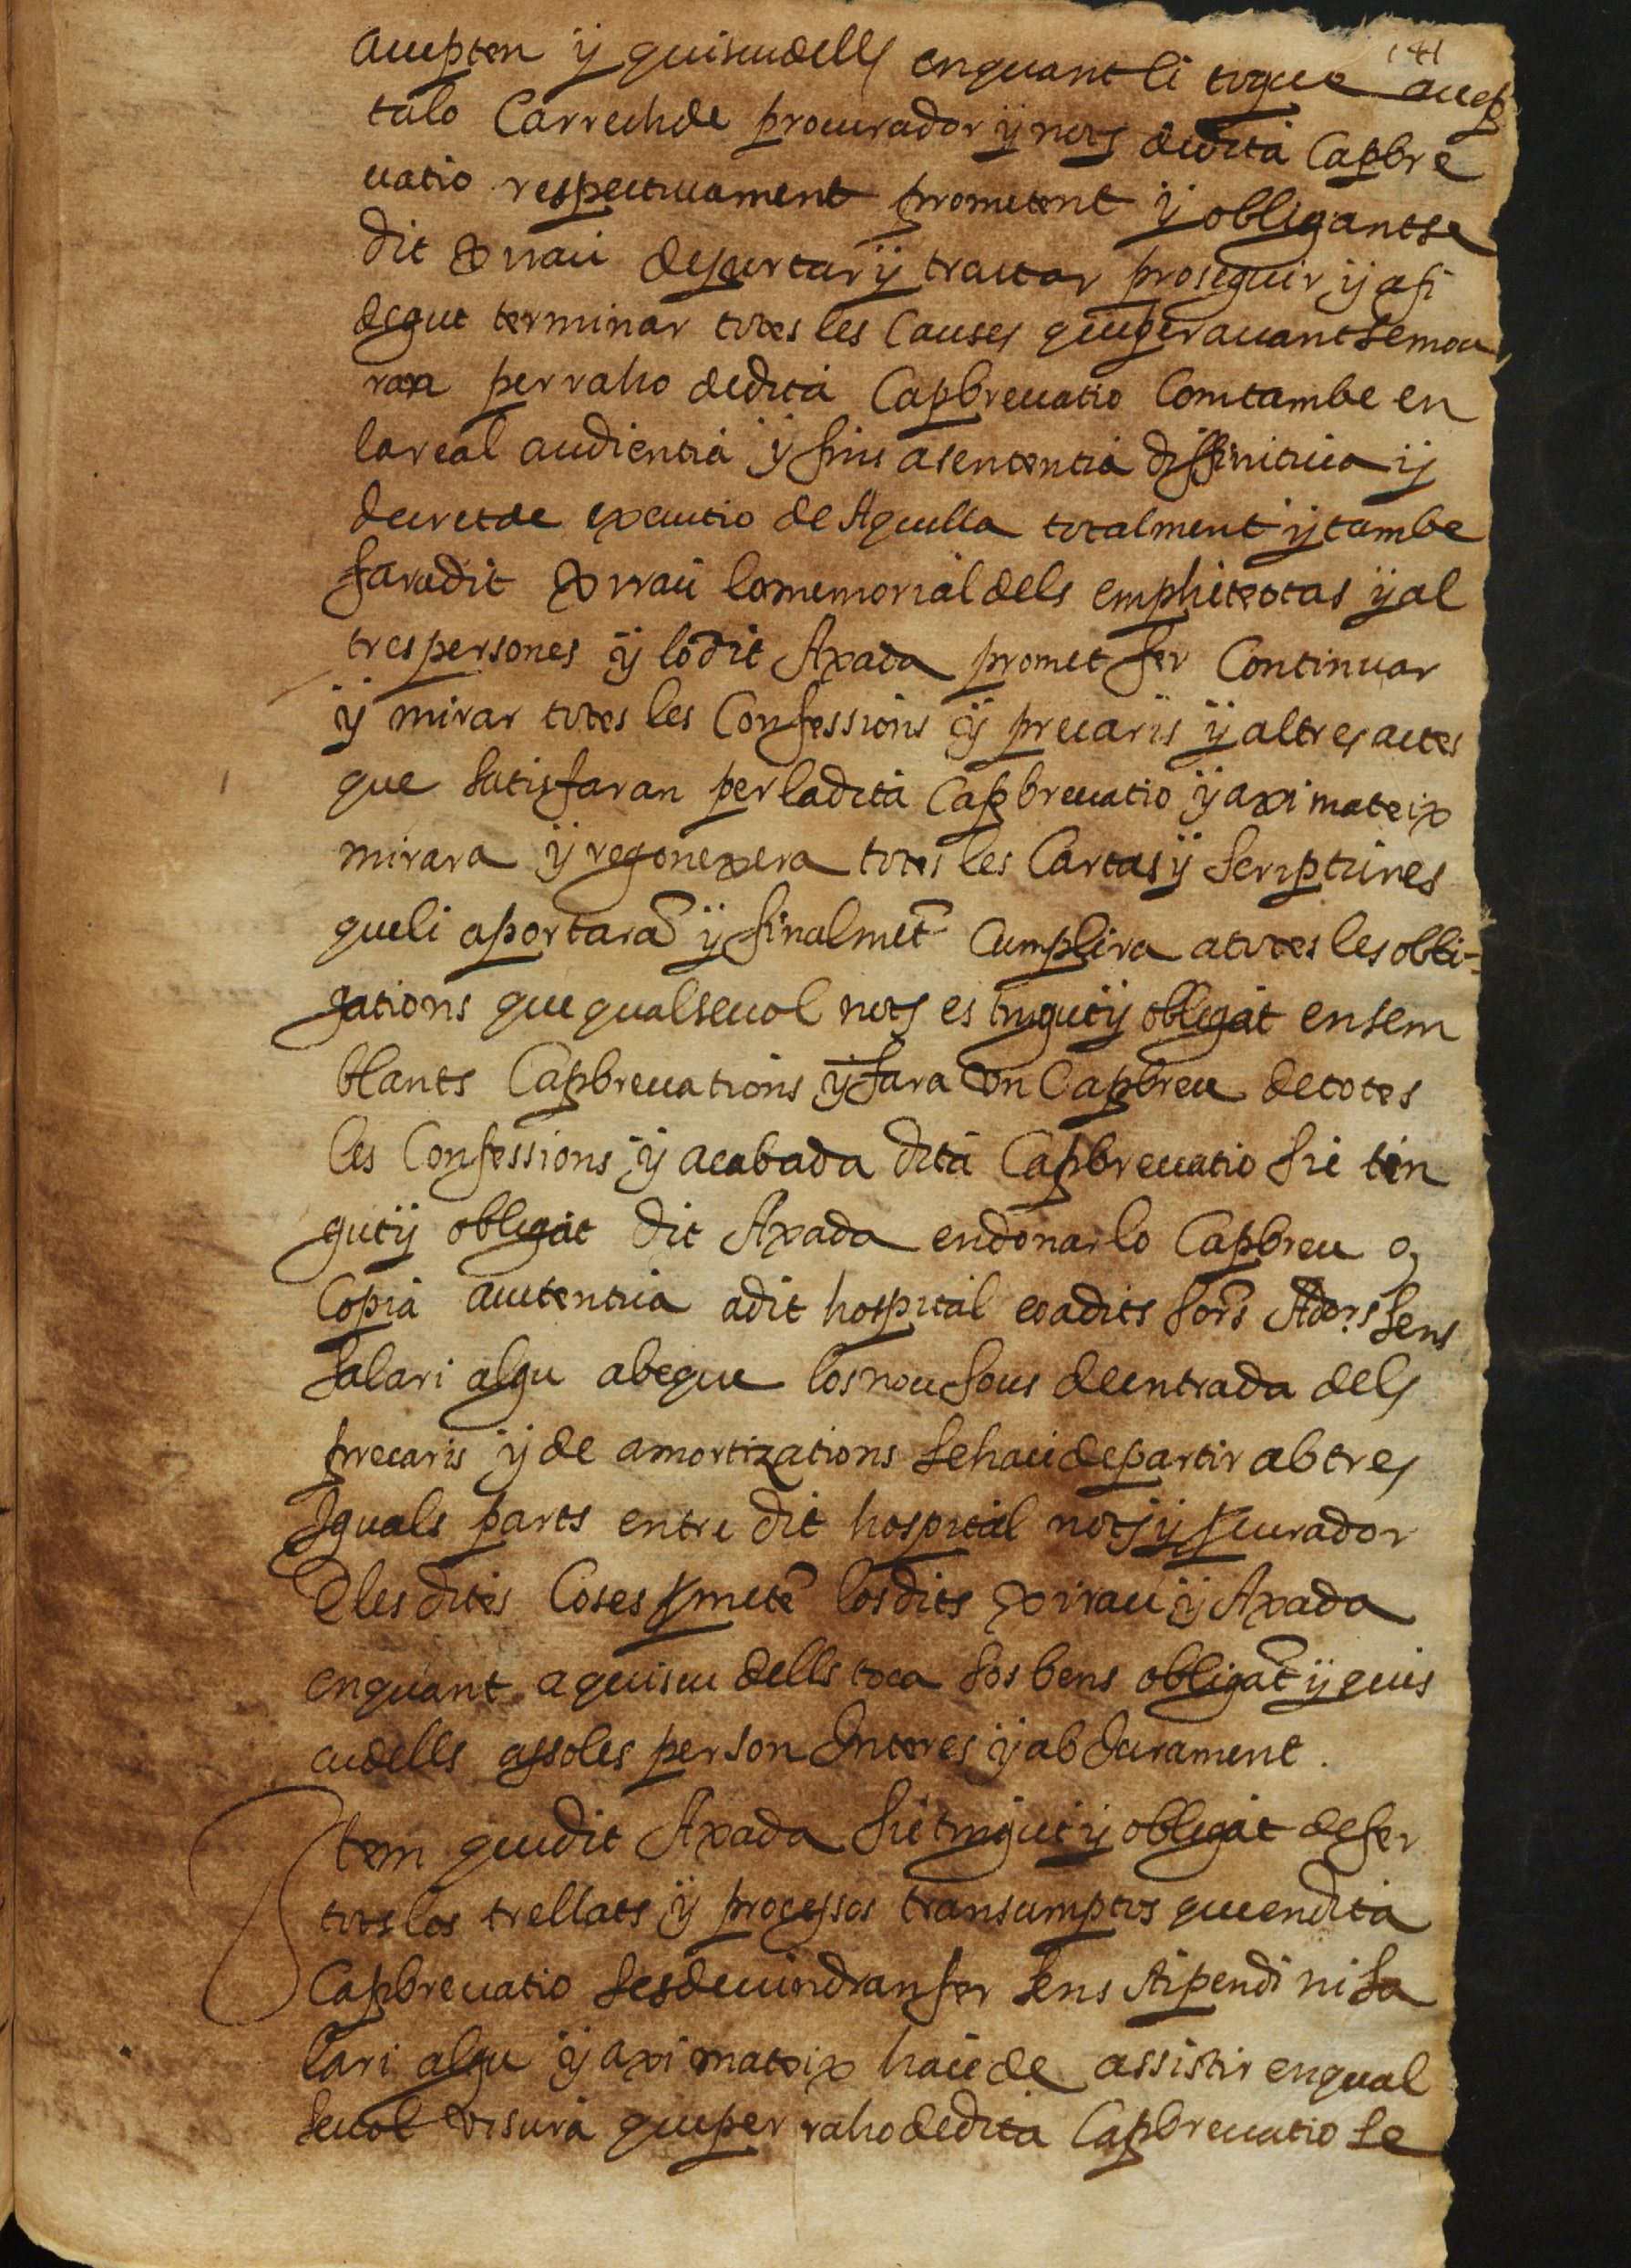 141
acepten y quiscudells enquant li toque accep
talo Carrechde procurador y nots dedita Capbre
uatio respectiuament prometent y obligantse
dit Xirau de portar y tractar proseguir y a fi
degut terminar totes les Causes queperauant semou
ran perraho dedita Capbreuatio Comtambe en
lareal audientia y fins asententia diffinitiua y
decretde executio de Aquella totalment ytambe
faradit Xirau lomemorial dels emphiteotas y al
trespersones y lodit Axada promet fer Continuar
y mirar totes les Confessions y precaris y altres actes
que satisfaran perladita Capbreuatio y axi mateix
mirara y regonexera totes les Cartas y scriptures
queli aportarã y finalmẽt Cumplira atotes les obli-
gations que qualseuol nots es tingut y obligat ensem
blants Capbreuations y fara vn Capbreu detotes
les Confessions y acabada dita Capbreuatio sie tin
gut y obligat dit Axada endonarlo Capbreu o
Copia autentica adit hospital eo adits sors Adors sens
salari algu abeque losnou sous deentrada dels
precaris y de amortizations sehaie departir abtres
Iguals parts entre dit hospital nots y pcurador
Eles dites Coses pmetẽ losdits Xirau y Axada
enquant aquiscu dells toca sos bens obligãt y quis
cudells assoles person Interes y ab Jurament.
Item quedit Axada sie tingut y obligat defer
totslos trellats y processos transumptos queendita
Capbreuatio sesdeuindranfer sens stipendi ni sa
lari algu y axi mateix haiede assistir enqual
seuol visura queper rahodedita Capbreuatio se